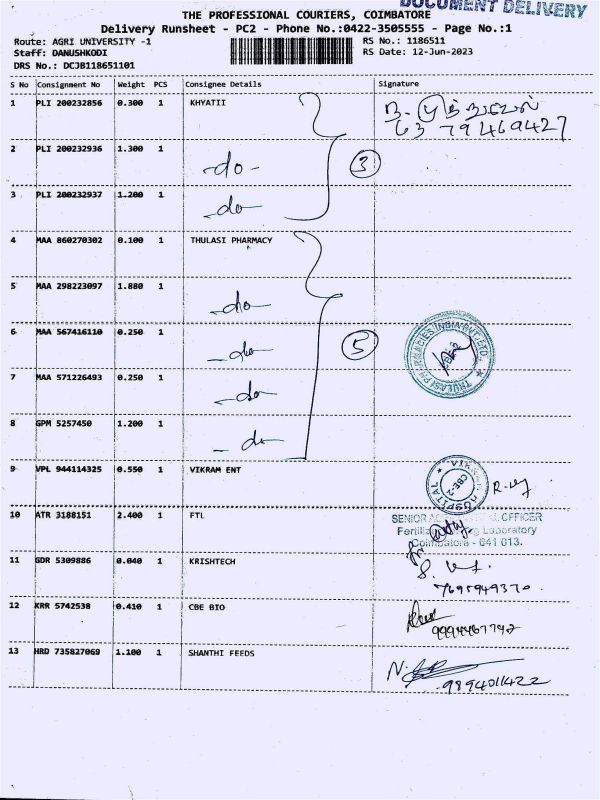 DOCUMENT DELIVERY
THE PROFESSIONAL COURIERS, COIMBATORE
Delivery Runsheet - PC2 - Phone No.:0422-3505555 - Page No.:1
Route: AGRI UNIVERSITY -1 RS No.: 1186511
Staff: DANUSHKODI RS Date: 12-Jun-2023
DRS No.: DCJB118651101
S No Consignment No Weight PCS Consignee Details Signature
1 PLI 200232856 0.300 1 KHYATII
63 79469427
2 PLI 200232936 1.300 1 -do- 3
3 PLI 200232937 1.200 1 -do-
4 MAA 860270302 0.100 1 THULASI PHARMACY
5 MAA 298223097 1.880 1 -do-
6 MAA 567416110 0.250 1 -do- 5 THULASI PHARMACIES INDIA PVT. LTD. CBE-2
7 MAA 571226493 0.250 1 -do-
8 GPM 5257450 1.200 1 -do-
9 VPL 944114325 0.550 1 VIKRAM ENT VIKRAM HOSPITAL CBE-2
10 ATR 3188151 2.400 1 FTL SENIOR OFFICER
Laboratory
Coimbatore - 641 013.
11 GDR 5309886 0.040 1 KRISHTECH
7695949370
12 KRR 5742538 0.410 1 CBE BIO
9994467742
13 HRD 735827069 1.100 1 SHANTHI FEEDS
9894011422